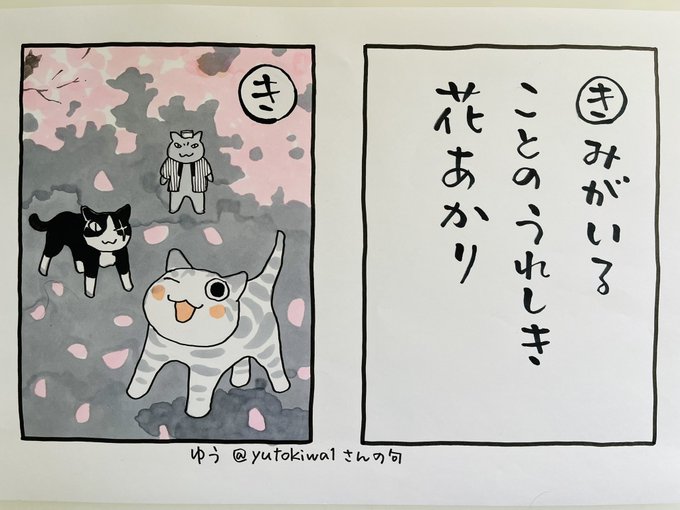 き
きみがいる
ことのうれしき
花あかり
ゆう @yutokiwa1さんの句